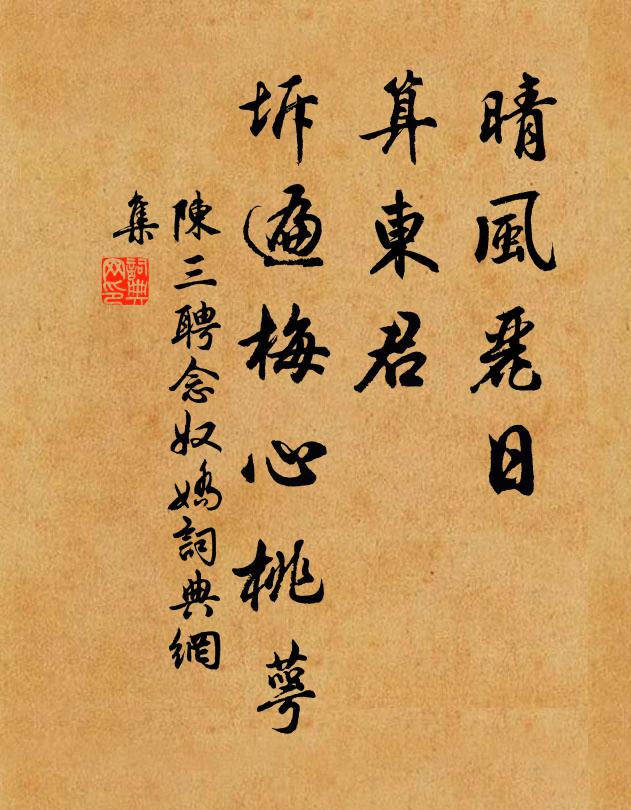 晴風麗日
算東君
坼遍梅心桃萼
陳三聘念奴嬌詞典網
集
詞典
网印